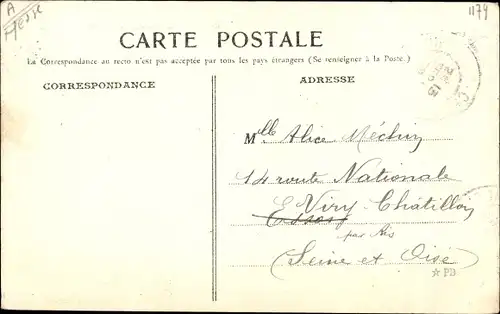 A
1179
CARTE POSTALE
La Correspondance au recto n'est pas acceptée par tous les pays étrangers (Se renseigner à la Poste.)
CORRESPONDANCE
ADRESSE
Mlle Alice Méchin
14 route Nationale
Viry Châtillon
par
(Seine et Oise)
☆ PB